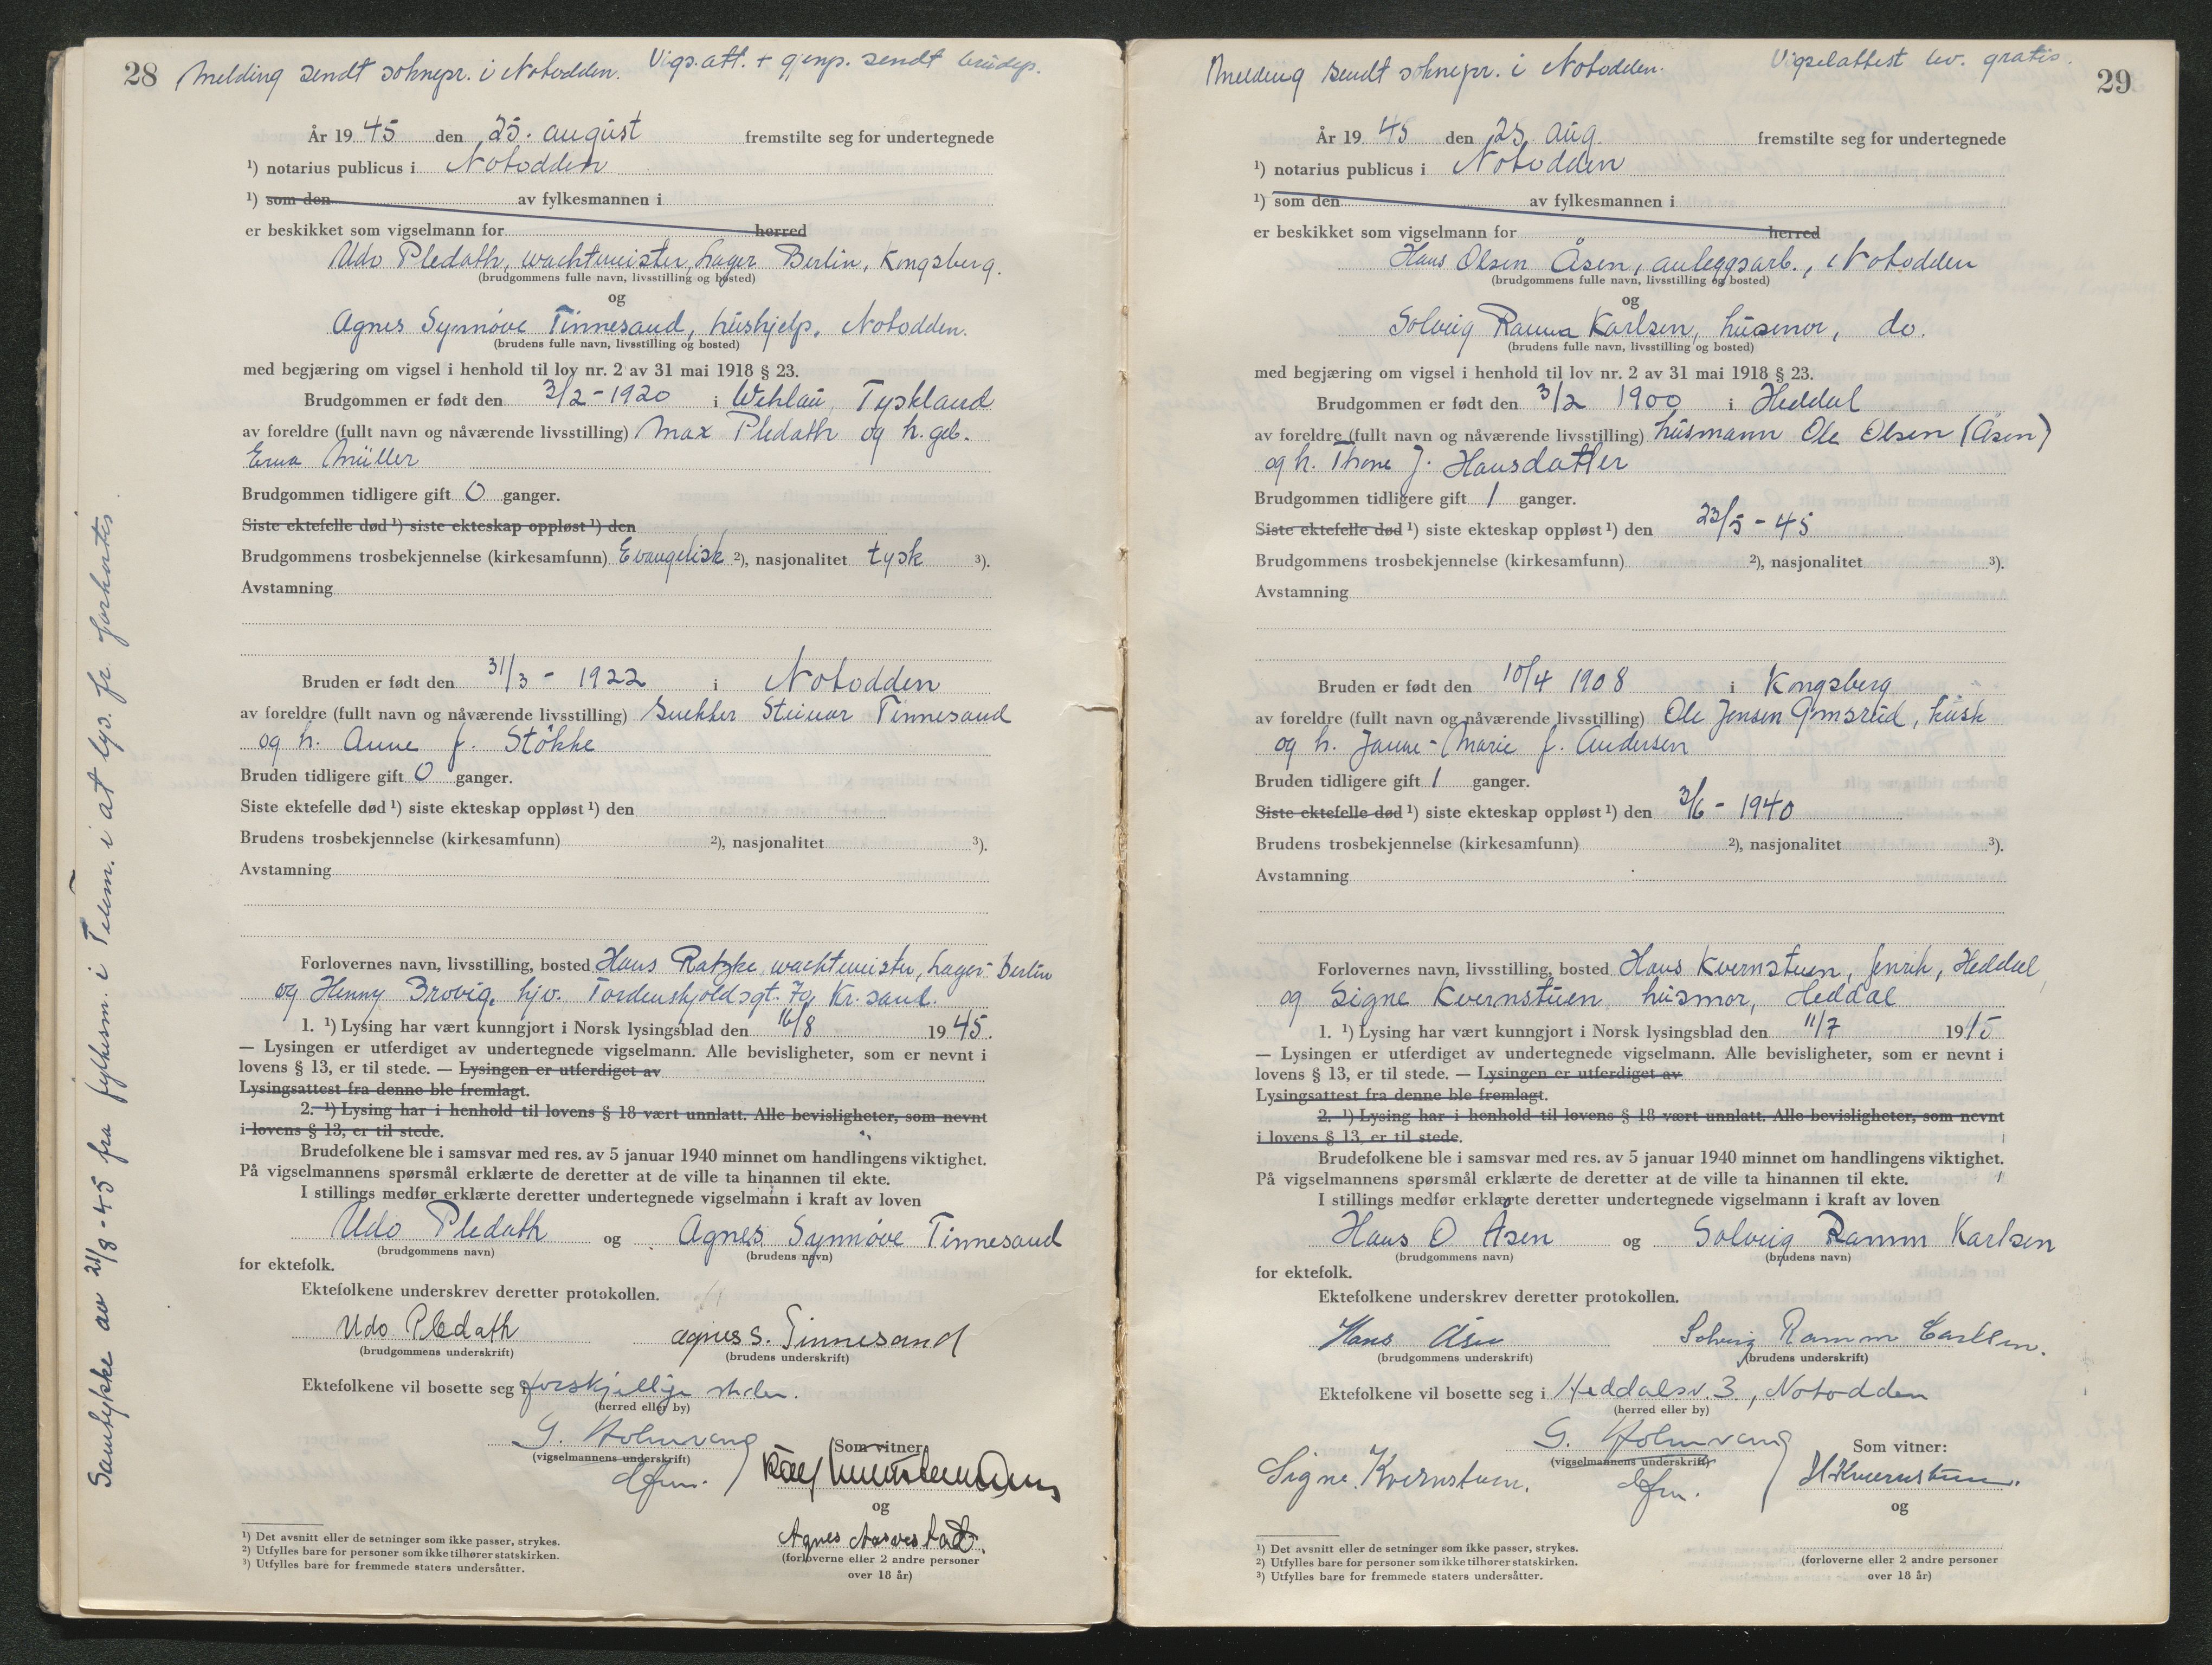 28 Melding sendt soknepr. i Notodden. Vigs.att. + gjenp. sendt brudep.
År 1945 den 25. august fremstilte seg for undertegnede
¹) notarius publicus i Notodden
¹) som den av fylkesmannen i
er beskikket som vigselmann for herred
Udo Pledath, wachtmeister, Lager Berlin, Kongsberg.
(brudgommens fulle navn, livsstilling og bosted)
og
Agnes Synnöve Tinnesand, hushjelp, Notodden.
(brudens fulle navn, livsstilling og bosted)
med begjæring om vigsel i henhold til lov nr. 2 av 31 mai 1918 § 23.
Brudgommen er født den 3/2 - 1920 i Wehlau, Tyskland
av foreldre (fullt navn og nåværende livsstilling) Max Pledath og h. geb.
Erna Müller
Brudgommen tidligere gift 0 ganger.
Siste ektefelle død ¹) siste ekteskap oppløst ¹) den
Brudgommens trosbekjennelse (kirkesamfunn) Evangelisk ²), nasjonalitet tysk ³).
Avstamning
Bruden er født den 31/3 - 1922 i Notodden
av foreldre (fullt navn og nåværende livsstilling) snekker Steinar Tinnesand
og h. Anne f. Stökke
Bruden tidligere gift 0 ganger.
Siste ektefelle død ¹) siste ekteskap oppløst ¹) den
Brudens trosbekjennelse (kirkesamfunn) ²), nasjonalitet ³).
Avstamning
Forlovernes navn, livsstilling, bosted Hans Ratzke, wachtmeister, Lager Berlin
og Henny Brovig, hjv. Tordenskjoldsgt. Kr.sand.
1. ¹) Lysing har vært kunngjort i Norsk lysingsblad den 16/8 1945.
— Lysingen er utferdiget av undertegnede vigselmann. Alle bevisligheter, som er nevnt i
lovens § 13, er til stede. — Lysingen er utferdiget av
Lysingsattest fra denne ble fremlagt.
2. ¹) Lysing har i henhold til lovens § 18 vært unnlatt. Alle bevisligheter, som nevnt
i lovens § 13, er til stede.
Brudefolkene ble i samsvar med res. av 5 januar 1940 minnet om handlingens viktighet.
På vigselmannens spørsmål erklærte de deretter at de ville ta hinannen til ekte.
I stillings medfør erklærte deretter undertegnede vigselmann i kraft av loven
Udo Pledath og Agnes Synnöve Tinnesand
(brudgommens navn) (brudens navn)
for ektefolk.
Ektefolkene underskrev deretter protokollen.
Udo Pledath Agnes S. Tinnesand
(brudgommens underskrift) (brudens underskrift)
Ektefolkene vil bosette seg forskjellige steder.
(herred eller by)
G. Holmvang Som vitner
(vigselmannens underskrift)
dfm.
og
Agnes Aasvestad.
(forloverne eller 2 andre personer
over 18 år)
¹) Det avsnitt eller de setninger som ikke passer, strykes.
²) Utfylles bare for personer som ikke tilhører statskirken.
³) Utfylles bare for fremmede staters undersåtter.
Samtykke av 21/8-45 fra fylkesm. i Telem. i at lys. fr. forkortes
Melding sendt soknepr. i Notodden. Vigselattest lev. gratis. 29
År 1945 den 25 aug. fremstilte seg for undertegnede
¹) notarius publicus i Notodden
¹) som den av fylkesmannen i
er beskikket som vigselmann for herred
Hans Olsen Åsen, anleggsarb., Notodden
(brudgommens fulle navn, livsstilling og bosted)
og
Solveig Ramm Karlsen, husmor, do.
(brudens fulle navn, livsstilling og bosted)
med begjæring om vigsel i henhold til lov nr. 2 av 31 mai 1918 § 23.
Brudgommen er født den 3/2 1900 i Heddal
av foreldre (fullt navn og nåværende livsstilling) husmann Ole Olsen (Åsen)
og h. Thone f. Hansdatter
Brudgommen tidligere gift 1 ganger.
Siste ektefelle død ¹) siste ekteskap oppløst ¹) den 23/5 - 45
Brudgommens trosbekjennelse (kirkesamfunn) ²), nasjonalitet ³).
Avstamning
Bruden er født den 10/4 1908 i Kongsberg
av foreldre (fullt navn og nåværende livsstilling) Ole Jensen Gomsrud,
og h. Janne-Marie f. Andersen
Bruden tidligere gift 1 ganger.
Siste ektefelle død ¹) siste ekteskap oppløst ¹) den 3/6 - 1940
Brudens trosbekjennelse (kirkesamfunn) ²), nasjonalitet ³).
Avstamning
Forlovernes navn, livsstilling, bosted Hans Kvernstuen, fenrik, Heddal,
og Signe Kvernstuen husmor, Heddal
1. ¹) Lysing har vært kunngjort i Norsk lysingsblad den 11/7 1945
— Lysingen er utferdiget av undertegnede vigselmann. Alle bevisligheter, som er nevnt i
lovens § 13, er til stede. — Lysingen er utferdiget av
Lysingsattest fra denne ble fremlagt.
2. ¹) Lysing har i henhold til lovens § 18 vært unnlatt. Alle bevisligheter, som nevnt
i lovens § 13, er til stede.
Brudefolkene ble i samsvar med res. av 5 januar 1940 minnet om handlingens viktighet.
På vigselmannens spørsmål erklærte de deretter at de ville ta hinannen til ekte.
I stillings medfør erklærte deretter undertegnede vigselmann i kraft av loven
Hans O Åsen og Solveig Ramm Karlsen
(brudgommens navn) (brudens navn)
for ektefolk.
Ektefolkene underskrev deretter protokollen.
Hans Åsen Solveig Ramm Carlsen.
(brudgommens underskrift) (brudens underskrift)
Ektefolkene vil bosette seg i Heddalsv. 3, Notodden
(herred eller by)
G. Holmvang Som vitner:
(vigselmannens underskrift)
Signe Kvernstuen. dfm. H Kvernstuen.
og
(forloverne eller 2 andre personer
over 18 år)
¹) Det avsnitt eller de setninger som ikke passer, strykes.
²) Utfylles bare for personer som ikke tilhører statskirken.
³) Utfylles bare for fremmede staters undersåtter.